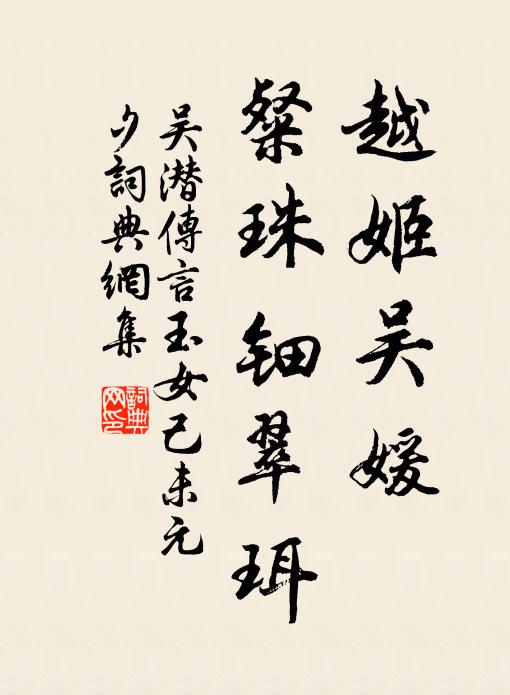 越姬吴媛
粲珠钿翠珥
吴潜傳言玉女己未元
夕詞典網集
詞典
网印